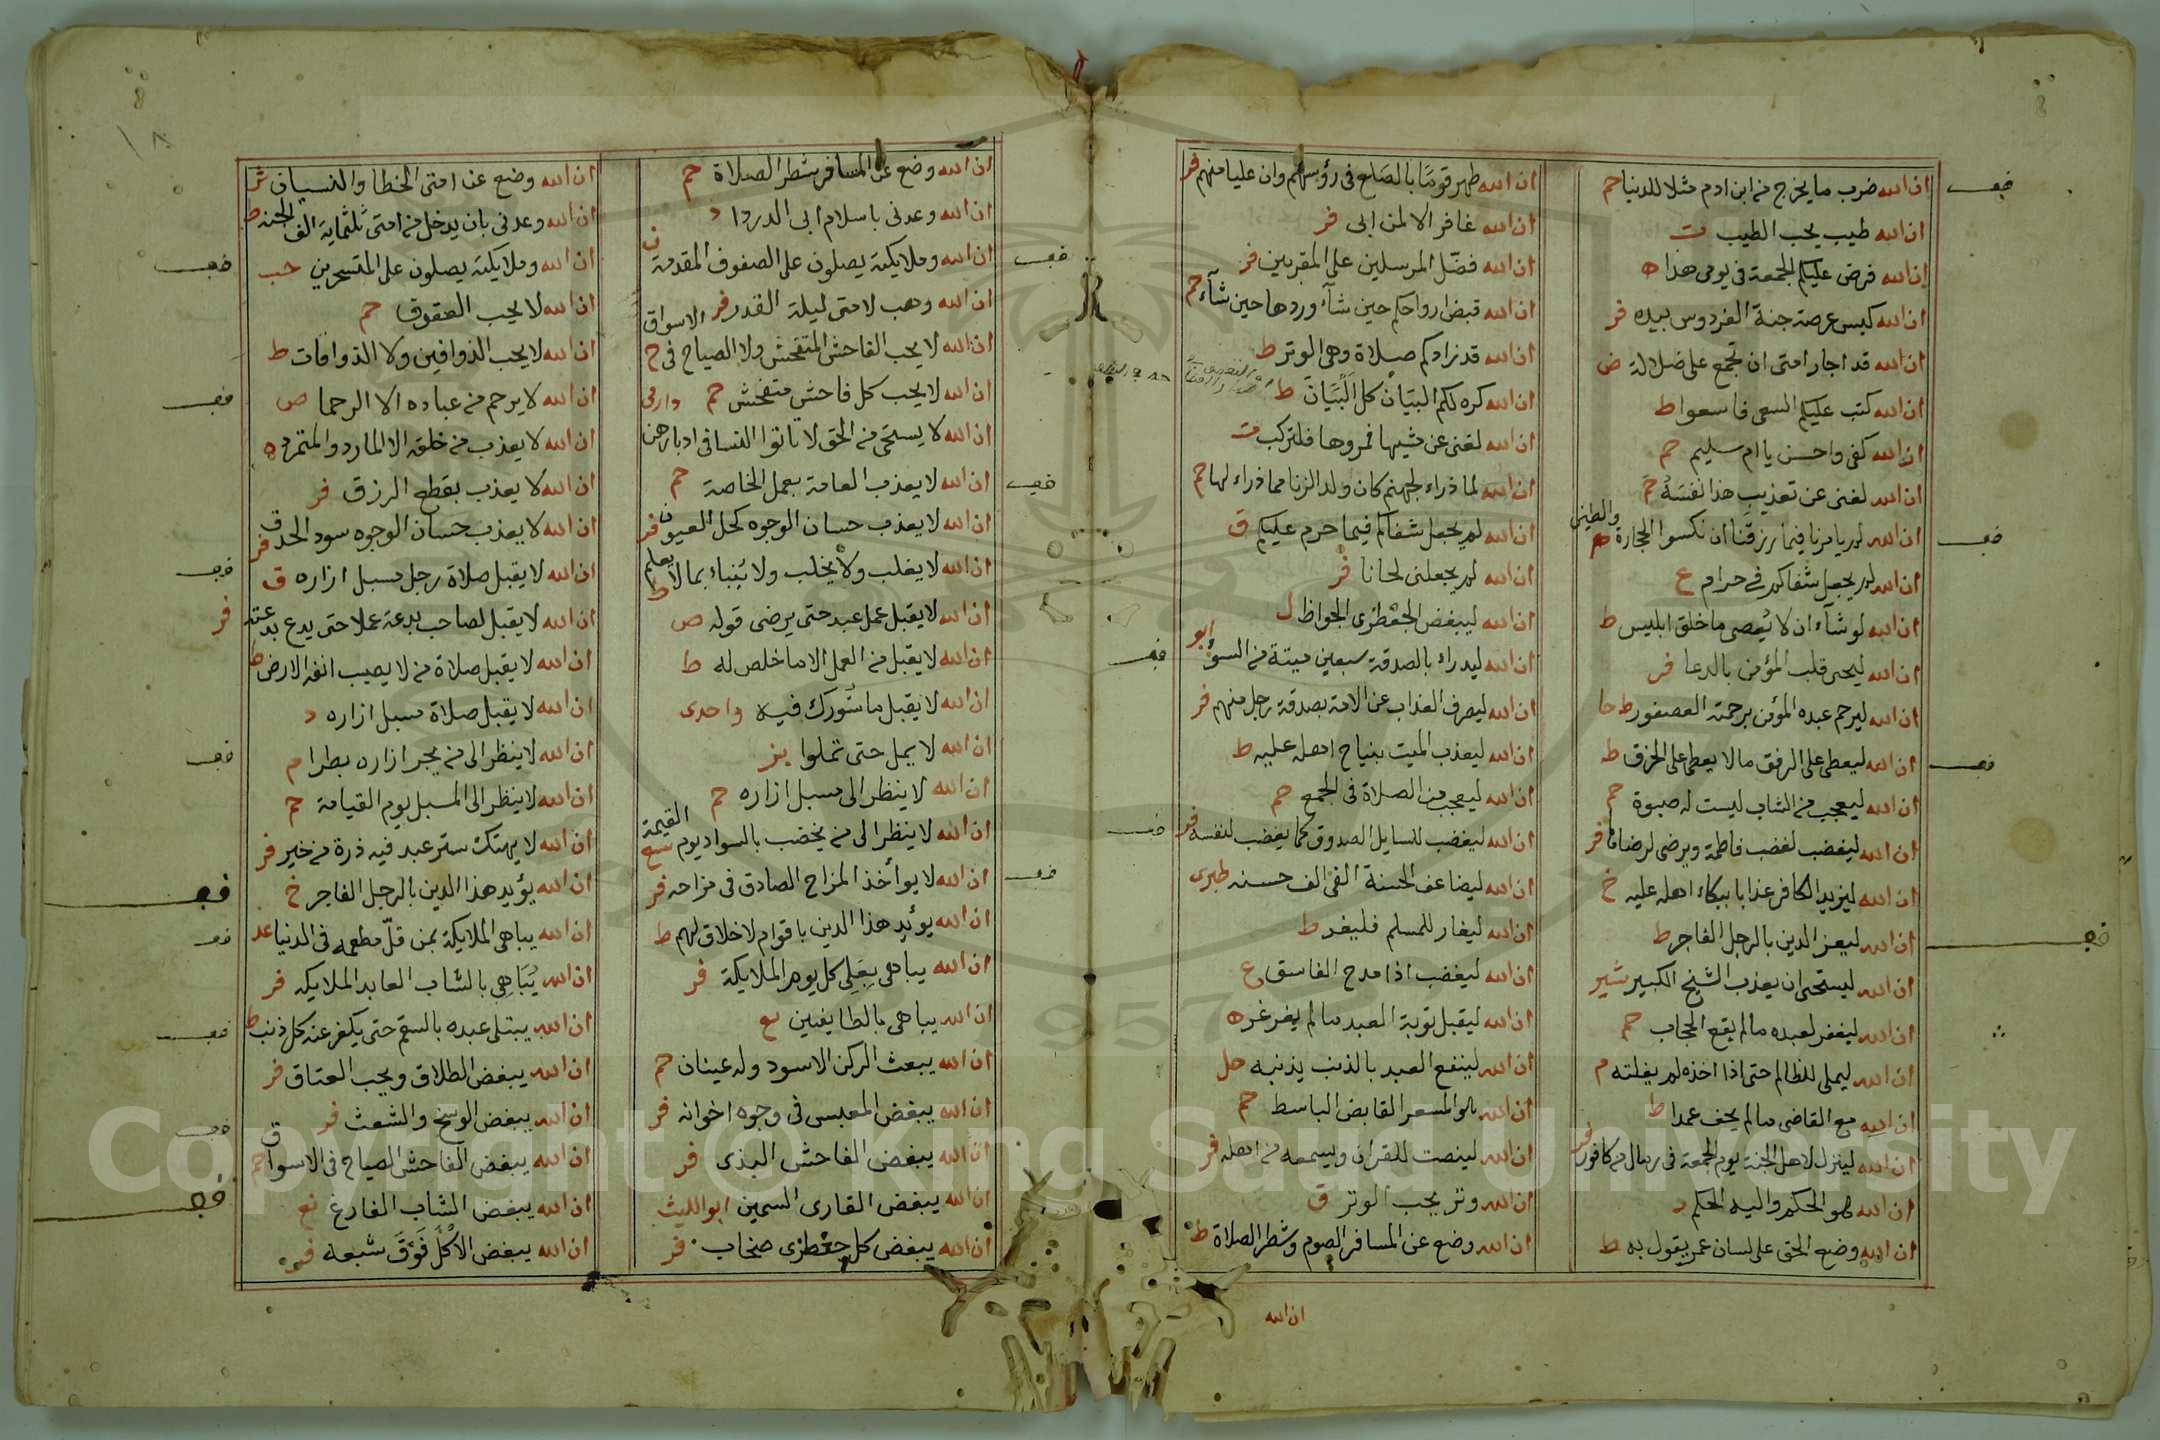 ان الله ضرب ما يخرج من ابن ادم مثلا للدنيا حم
ان الله طيب يحب الطيب ت
ان الله فرض عليكم الجمعة في يومى هذا ه
ان الله كبس عرصة جنة الفردوس بيده فر
ان الله قد اجار امتى ان تجمع على ضلالة ض
ان الله كتب عليكم السعى فاسعوا ط
ان الله كفى واحسن يا ام سليم حم
ان الله لغنى عن تعذيب هذا نفسه حم
ان الله لم يامرنا فيما رزقنا ان نكسوا الحجارة والطين م
ان الله لم يجعل شفاكم في حرام ع
ان الله لو شآء ان لا يُعصى ما خلق ابليس ط
ان الله ليحى قلب المؤمن بالدعا فر
ان الله ليرحم عبده المؤمن برحمته العصفور ط حا
ان الله ليعطى على الرفق ما لا يعطى على الخرق ط
ان الله ليعجب من الشاب ليست له صبوة حم
ان الله ليغضب لغضب فاطمة ويرضى لرضاها فر
ان الله ليزيد الكافر عذابا ببكاء اهله عليه خ
ان الله ليعز الدين بالرجل الفاجر ط
ان الله ليستحى ان يعذب الشيخ الكبير شير
ان الله ليغفر لعبده مالم يقع الحجاب حم
ان الله ليملى للظالم حتى اذا اخذه لم يفلته م
ان الله مع القاضى مالم يحف عمدا ط
ان الله لينزل لاهل الجنة يوم الجمعة فى رمال من كافور فر
ان الله هو الحكم واليه الحكم د
ان الله وضع الحق على لسان عمر يقول به ط
ان الله طهر قومًا بالصلع فى رؤسهم وان عليا منهم فر
ان الله غافر الا لمن ابى فر
ان الله فضّل المرسلين على المقربين فر
ان الله قبض ارواحكم حين شآء وردها حين شآء حم
ان الله قد زادكم صلاة وهى الوتر ط
ان الله كره لكم البيَان كل البَيَان ط
ان الله لغنى عن مشيها فمروها فلتركب ت
ان الله لما ذراء لجهنم كان ولد الزنا مما ذراء لها حم
ان الله لم يجعل شفاكم فيما حرم عليكم ق
ان الله لم يجعلنى لحانا فر
ان الله ليبغض الجعْظرى الجواظ ل
ان الله ليدراء بالصدقة سبعين ميتة من السؤ ابو
ان الله ليصرف العذاب عن الامة بصدقة رجل منهم فر
ان الله ليعذب الميت بنياح اهله عليه ط
ان الله ليعجب من الصلاة فى الجمع حم
ان الله ليغضب للسايل الصدوق كما يغضب لنفسه فر
ان الله ليضاعف الحسنة الفى الف حسنه طبرى
ان الله ليغار للمسلم فليغر ط
ان الله ليغضب اذا مدح الفاسق ع
ان الله ليقبل توبة العبد مالم يغرغر ه
ان الله لينفع العبد بالذنب يذنبه حل
ان الله هو المسعر القابض الباسط حم
ان الله لينصت للقران ويسمعه من اهله فر
ان الله وتر يحب الوتر ق
ان الله وضع عن المسافر الصوم وشطر الصلاة ط
ان الله
ان الله وضع عن المسافر شطر الصلاة حم
ان الله وعدنى باسلام ابى الدردا د
ان الله وملايكته يصلون على الصفوف المقدمة ن
ان الله وهب لامتى ليلة القدر فر
ان الله لا يحب الفاحش المتفحش ولا الصياح فى الاسواق خ
ان الله لا يحب كل فاحش متفحش حم
ان الله لا يستحى من الحق لا تاتوا النسا فى ادبارهن دارمى
ان الله لا يعذب العامة بعمل الخاصة حم
ان الله لا يعذب حسان الوجوه كحل العيون فر
ان الله لا يغلب ولا يخلب ولا يُنباء بما لا يعلم ط
ان الله لا يقبل عمل عبد حتى يرضى قوله ص
ان الله لا يقبل من العمل الا ما خلص له ط
ان الله لا يقبل ما شورك فيه واحدى
ان الله لا يمل حتى تملوا بز
ان الله لا ينظر الى مسبل ازاره حم
ان الله لا ينظر الى من يخضب بالسواد يوم القيمة سع
ان الله لا يوأخذ المزاح الصادق فى مزاحه فر
ان الله يؤيد هذا الدين باقوام لا خلاق لهم ط
ان الله يباهى بِعَلِى كل يوم الملايكة فر
ان الله يباهى بالطايفين نع
ان الله يبعث الركن الاسود وله عينان حم
ان الله يبغض المعبس فى وجوه اخوانه فر
ان الله يبغض الفاحش البذى فر
ان الله يبغض القارى السمين ابو الليث
ان الله يبغض كل جعْظرى صخاب فر
ان الله وضع عن امتى الخطا والنسيان ش
ان الله وعدنى بان يدخل من امتى ثلثماية الف الجنة ط
ان الله وملايكته يصلون على المتسحرين حب
ان الله لا يحب العقوق حم
ان الله لا يحب الذواقين ولا الذواقات ط
ان الله لا يرحم من عباده الا الرحما ص
ان الله لا يعذب من خلقه الا المارد والمتمرد ه
ان الله لا يعذب بقطع الرزق فر
ان الله لا يعذب حسان الوجوه سود الحدق فر
ان الله لا يقبل صلاة رجل مسبل ازاره ق
ان الله لا يقبل لصاحب بدعة عملا حتى يدع بدعته فر
ان الله لا يقبل صلاة من لا يصيب انفه الارض ط
ان الله لا يقبل صلاة مسبل ازاره د
ان الله لا ينظر الى من يجر ازاره بطرا م
ان الله لا ينظر الى المسبل يوم القيامة حم
ان الله لا يهتك ستر عبد فيه ذرة من خير فر
ان الله يؤيد هذا الدين بالرجل الفاجر خ
ان الله يباهى الملايكة بمن قلّ مطعمه فى الدنيا عد
ان الله يُبَاهِى بالشاب العابد الملايكه فر
ان الله يبتلى عبده بالسقم حتى يكفر عنه كل ذنب ط
ان الله يبغض الطلاق ويحب العتاق فر
ان الله يبغض الوسخ والشعث فر
ان الله يبغض الفاحش الصياح فى الاسواق حم
ان الله يبغض الشاب الفارغ نع
ان الله يبغض الاكل فَوقَ شبعه فر
Copyright © King Saud University
1957